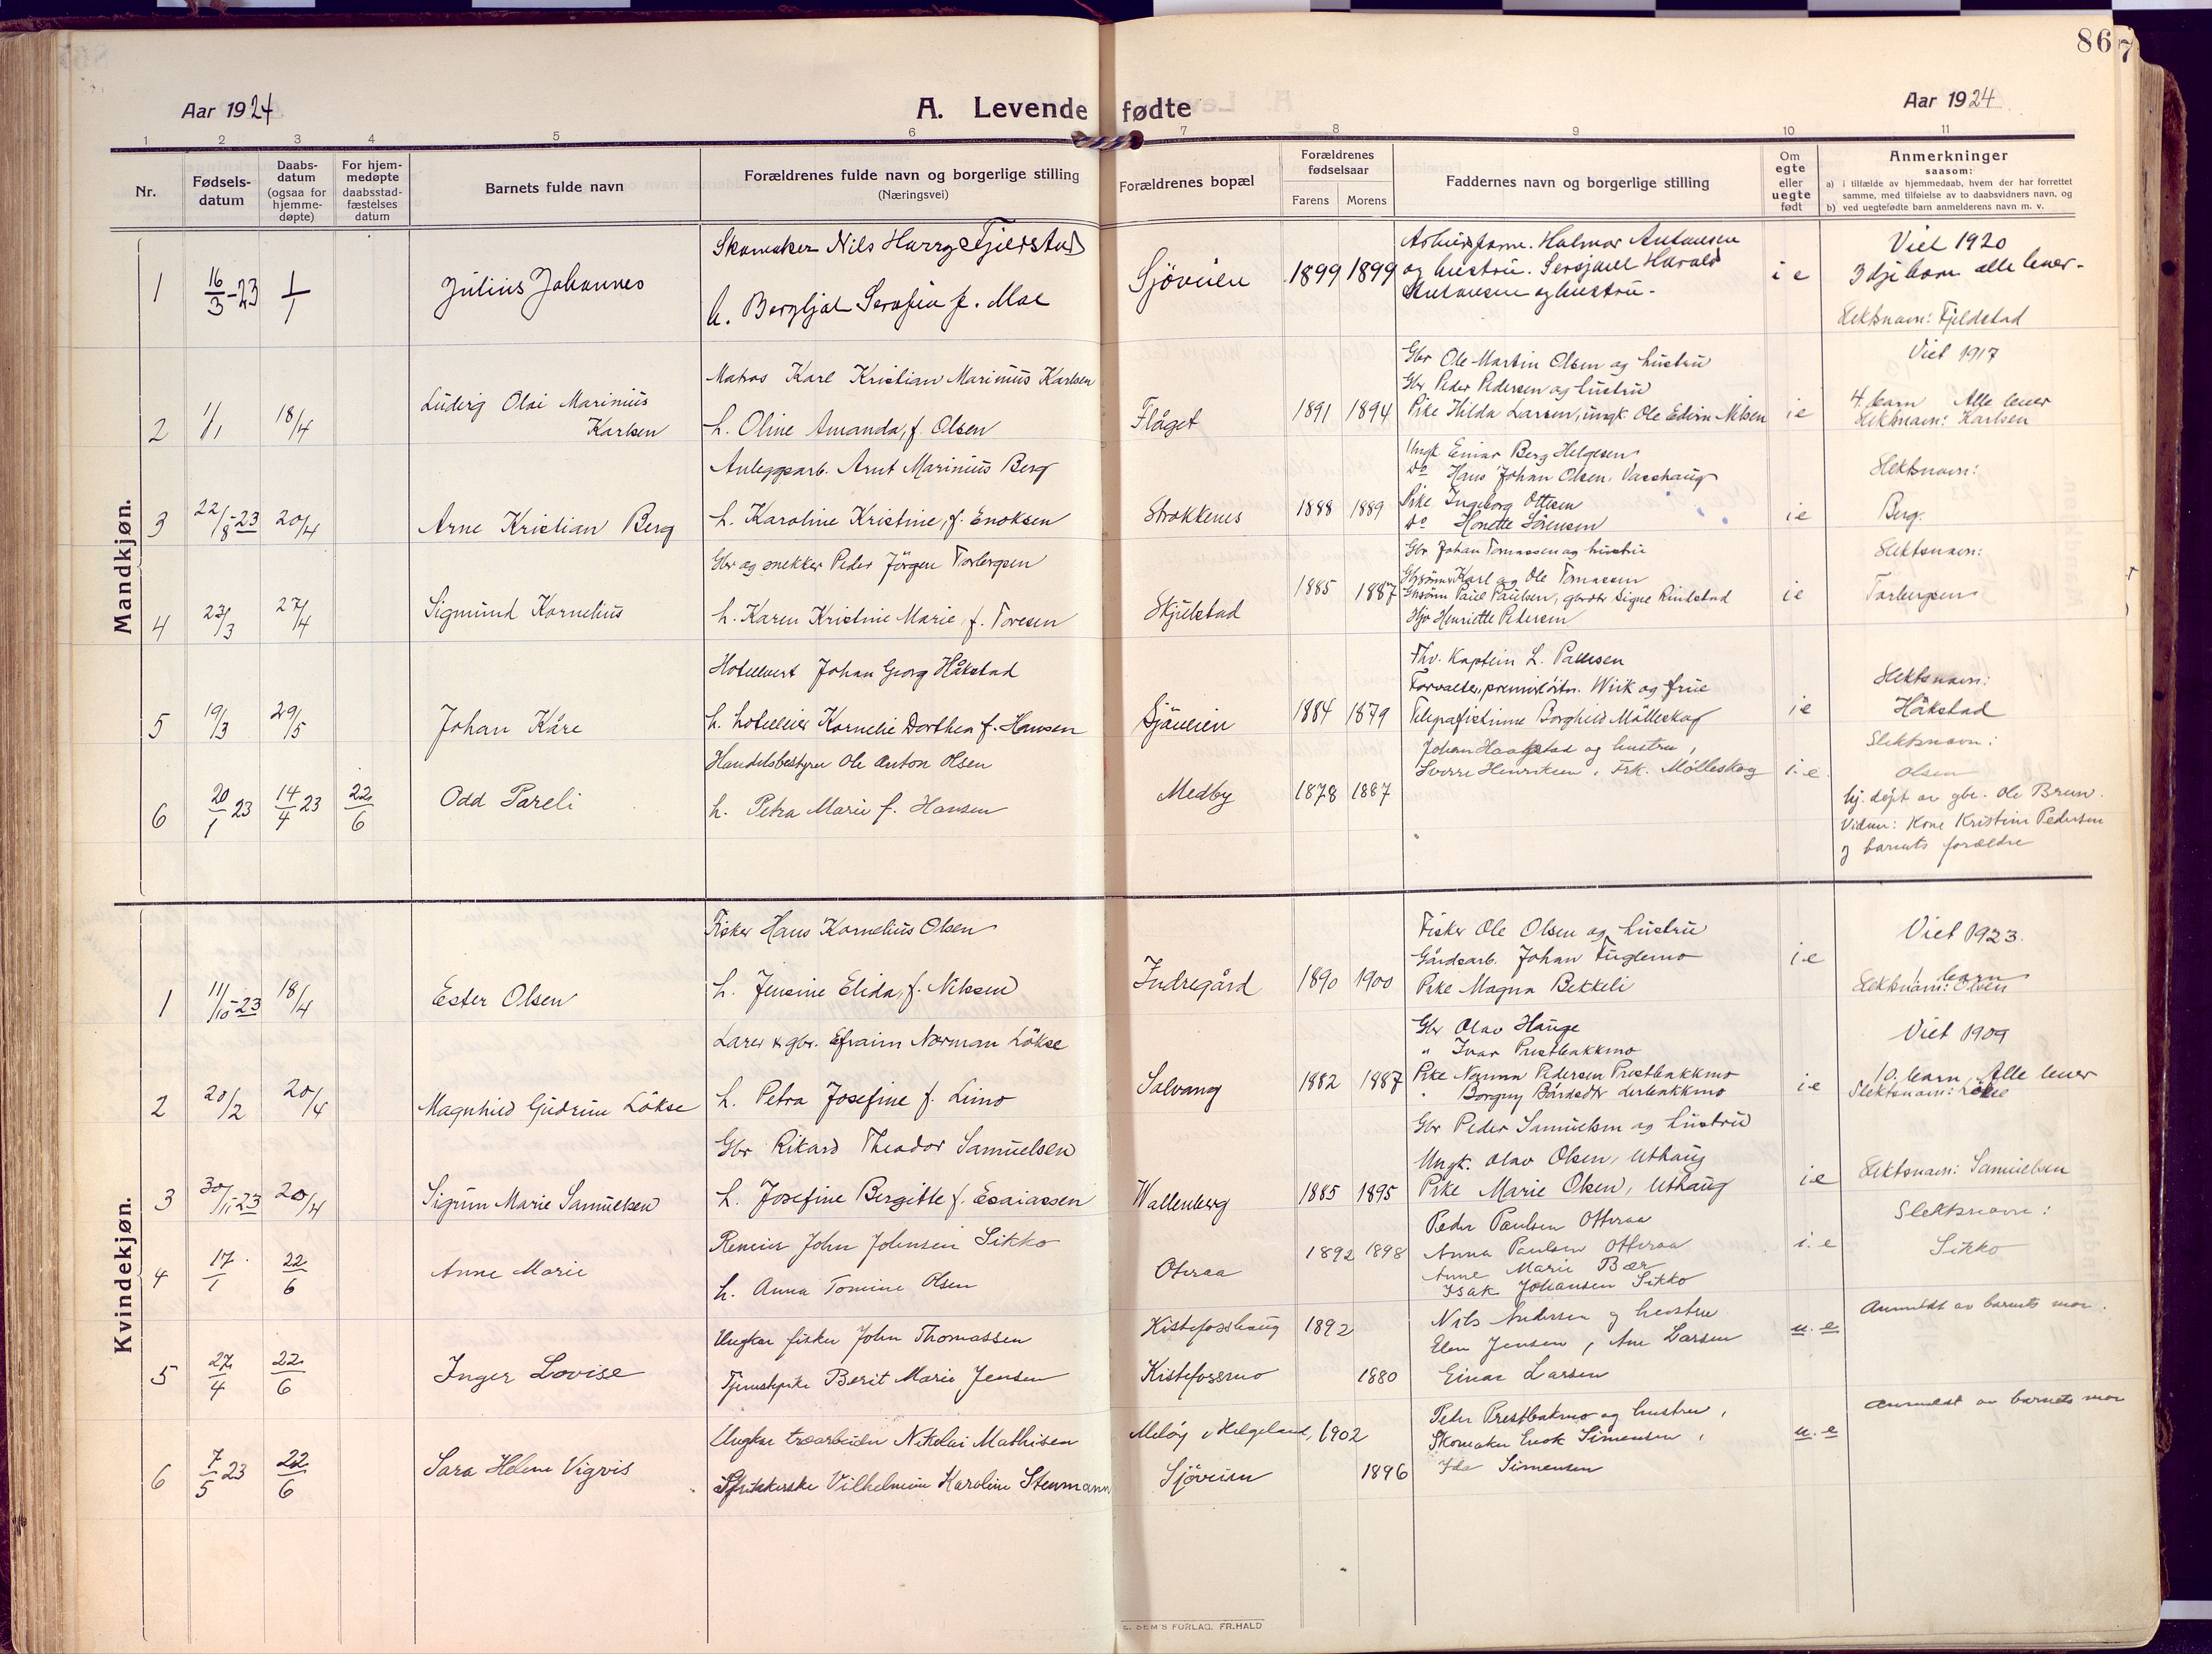 86
7
Aar 1924
A. Levende fødte
Aar 1924
1 2 3 4 5 6 7 8 9 10 11
Nr.
Fødsels-datum
Daabs-datum (ogsaa for hjemme-døpte)
For hjem-medøpte daabsstad-fæstelses datum
Barnets fulde navn
Forældrenes fulde navn og borgerlige stilling (Næringsvei)
Forældrenes bopæl
Forældrenes fødselsaar
Farens Morens
Faddernes navn og borgerlige stilling
Om egte eller uegte født
Anmerkninger
saasom:
a) i tilfælde av hjemmedaab, hvem der har forrettet samme, med tilføielse av to daabsvidners navn, og
b) ved uegtefødte barn anmelderens navn m. v.
Mandkjøn.
1 16/3-23 1/1 Julius Johannes
Skomaker Nils Harry Fjeldstad
h. Bergljot Serafia f. Moe
Sjøveien 1899 1899
Arbeidsform. Halmar Antonsen
og hustru. Sersjant Harald
Antonsen og hustru.
i e
Viet 1920
3dje barn alle lever.
Slektsnavn: Fjeldstad
2 1/1 18/4 Ludvig Olai Marinius
Karlsen
Matros Karl Kristian Marinius Karlsen
h. Oline Amanda, f. Olsen
Flåget 1891 1894
Gbr Ole Martin Olsen og hustru
Gbr Peder Pedersen og hustru
Pike Hilda Larsen, ungk. Ole Edvin Nilsen
i e
Viet 1917
4. barn Alle lever
Slektsnavn: Karlsen
3 22/8-23 20/4 Arne Kristian Berg
Anleggsarb. Arnt Marinius Berg
h. Karoline Kristine, f. Enoksen
Strokkenes 1888 1889
Ungk. Einar Berg Helgesen
do Hans Johan Olsen, Vasshaug
Pike Ingeborg Ottesen
do Honette Sörensen
i e
Slektsnavn:
Berg.
4 23/3 27/4 Sigmund Kornelius
Gbr og snekker Peder Jörgen Torbergsen
h. Karen Kristine Marie, f. Toresen
Skjelstad 1885 1887
Gbr Johan Tomassen og hustru
Gbrsönner Karl og Ole Tomassen
Gbrsönn Paul Paulsen, gbrdtr Signe Rindstad
Hjo Henriette Petersen
i e
Slektsnavn:
Torbergsen
5 19/3 29/5 Johan Kåre
Hotellvert Johan Georg Håkstad
h. hotelleier Kornelie Dorthea f. Hansen
Sjöveien 1884 1879
Fhv. Kaptein L. Pallesen
Forvalter, premierlöitn. Wiik og frue
Telegrafistinne Borghild Mölleskog
i e
Slektsnavn:
Håkstad
6 20/1 23 14/4 23 22/6 Odd Pareli
Handelsbestyrer Ole Anton Olsen
h. Petra Marie f. Hansen
Medby 1878 1887
Johan Haakstad og hustru,
Sverre Henriksen, Frk. Mølleskog
i. e.
Slektsnavn:
Olsen
hj. døpt av gbr. Ole Brun.
Vidner: Kone Kristine Pedersen
og barnets forældre
Kvindekjøn.
1 11/10-23 18/4 Ester Olsen
Fisker Hans Kornelius Olsen
h. Jensine Elida, f. Nilssen
Indregård 1890 1900
Fisker Ole Olsen og hustru
Gårdsarb. Johan Fuglemo
Pike Magna Bekkeli
i e
Viet 1923.
1 barn
Slektsnavn: Olsen
2 20/2 20/4 Magnhild Gudrun Lökse
Lærer & gbr. Efraim Norman Lökse
h. Petra Josefine f. Limo
Solvang 1882 1887
Gbr Olav Hauge
" Ivar Prestbakkmo
Pike Norma Pedersen Prestbakkmo
" Borgny Bårdsdtr
i e
Viet 1909
10. barn. Alle lever
Slektsnavn: Lökse
3 30/11-23 20/4 Sigrun Marie Samuelsen
Gbr Rikard Theodor Samuelsen
h. Josefine Bergitte f. Esaiassen
Wallenberg 1885 1895
Gbr Peder Samuelsen og hustru
Ungk. Olav Olsen, Uthaug
Pike Marie Olsen, Uthaug
i e
Slektsnavn: Samuelsen
4 17/1 22/6 Anne Marie
Reneier John Johnsen Sikko
h. Anna Tomine Olsen
Oteraa 1892 1898
Peder Paulsen Otteraa
Anna Paulsen Otteraa
Anne Marie Bær
Isak Johansen Sikko
i. e
Slektsnavn:
Sikko
5 27/4 22/6 Inger Lovise
Ungkar fisker John Thomassen
Tjenestepike Berit Marie Jensen
Kistefosshaug 1892
Kistefossmo 1880
Nils Andersen og hustru
Elen Jensen, Ane Larsen
Einar Larsen
u. e
Anmeldt av barnets mor.
6 7/5 23 22/6 Sara Helene Vigvis
Ungkar træarbeider Nikolai Mathisen
Vilhelmine Karoline Stenmann
Meløy i Helgeland, 1902
Sjöveien 1896
Peder Prestbakmo og hustru,
Skomaker Enok Simensen,
Ida Simensen
u. e
Anmeldt av barnets mor
E. SEM'S FORLAG. FR.HALD